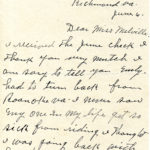 Richmond Va.
June 6.
Dear Miss Melville
I received the June check I
thank you very mutch I
am sory to tell you Emly
had to turn back from
Roanoke va. I never saw
Eny one in my life get so
sick from riding I thought
I was going back with